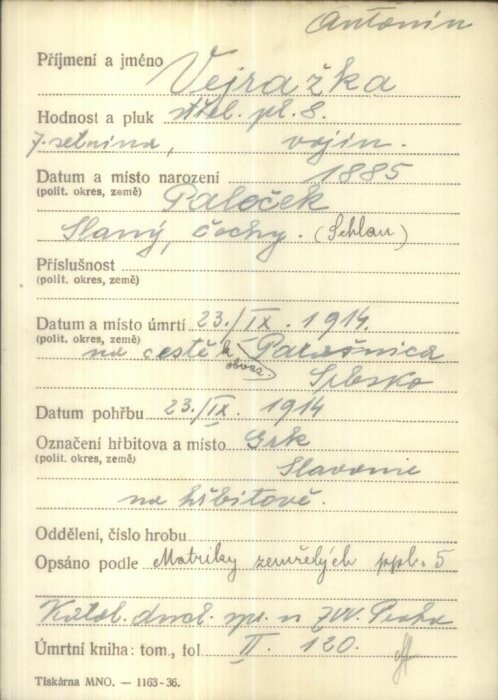 Antonín
Příjmení a jméno Vejražka
Hodnost a pluk střel. pl. 8.
7. setnina, vojín.
Datum a místo narození 1885
(polit. okres, země) Paloček
Slaný, Čechy. (Schlan)
Příslušnost
(polit. okres, země)
Datum a místo úmrtí 23./IX. 1914.
(polit. okres, země) na cestě k Parašnica
obvaz.
Srbsko
Datum pohřbu 23./IX. 1914
Označení hřbitova a místo Grk
(polit. okres, země) Slavonie
na hřbitově.
Oddělení, číslo hrobu
Opsáno podle Matriky zemřelých ppl. 5
Katol. duch. spr. u ZVV. Praha
Úmrtní kniha: tom., fol II. 120.
Tiskárna MNO. — 1163-36.